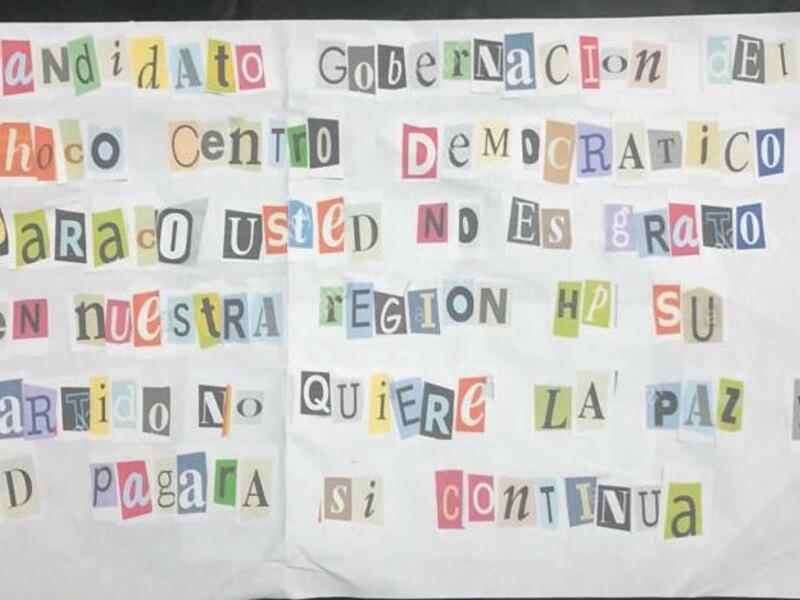 andidATO GobernaCIon dEl
hoco CenTrO DeMOCRATiCO
ARACO USTED NO Es gRaTO
eN nUeSTRA rEGION HP SU
aRTidO No QUiERe LA PAZ
D pagarA si CONTINUa